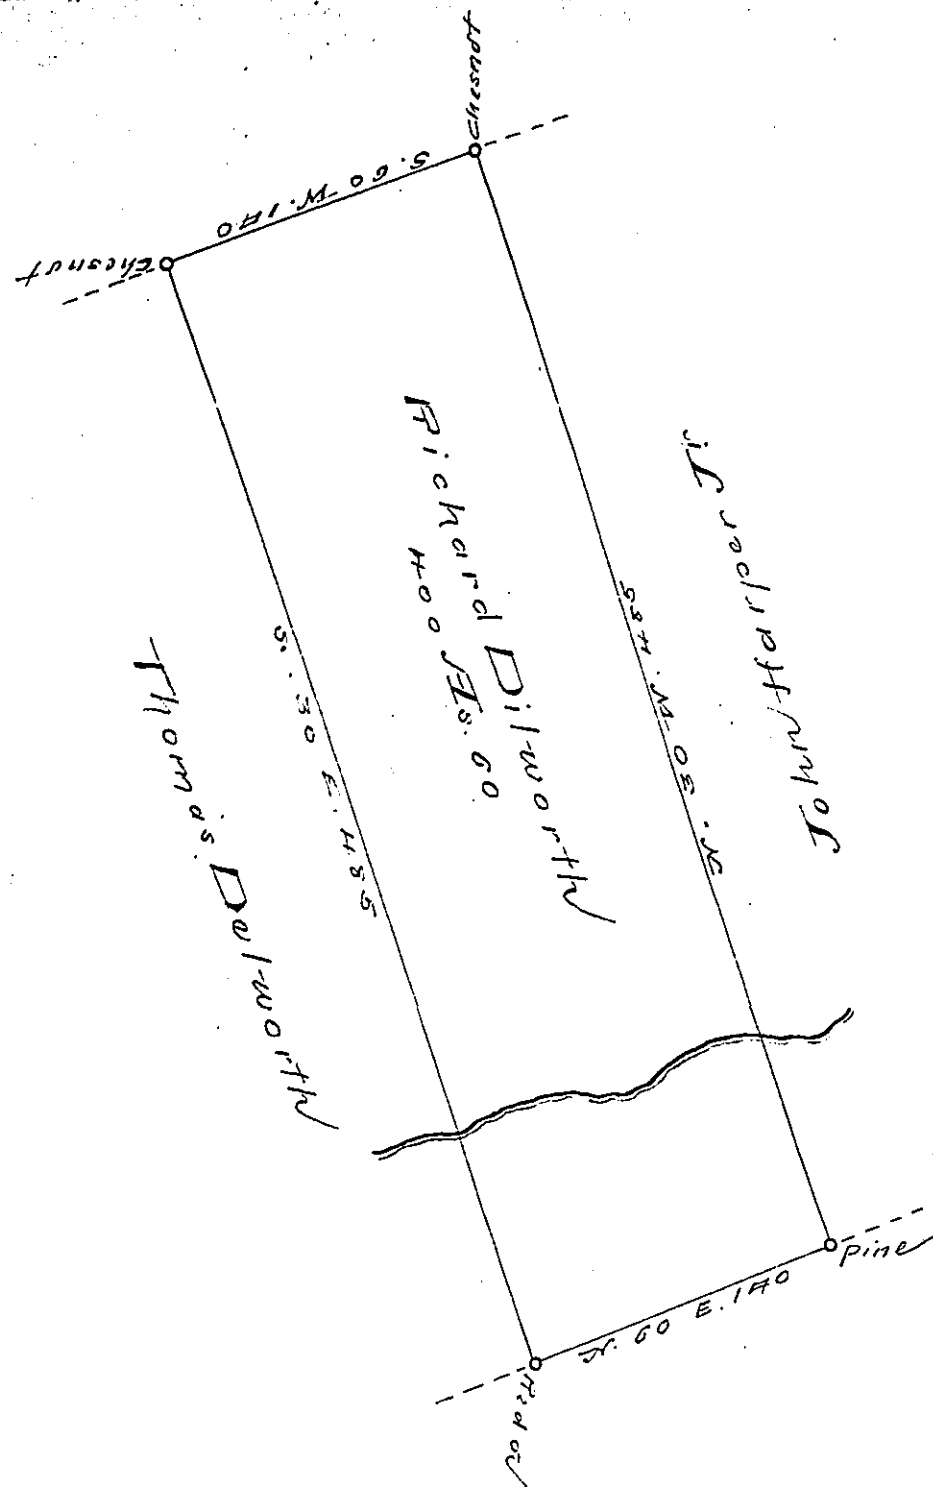 Chesnut
S. 60 W. 140
Chesnut
John Harper Jr
N. 30 W. 485
Richard Dilworth
400 As. 60
S. 30 E. 485
Thomas Dalworth
Pine
N. 60 E. 140